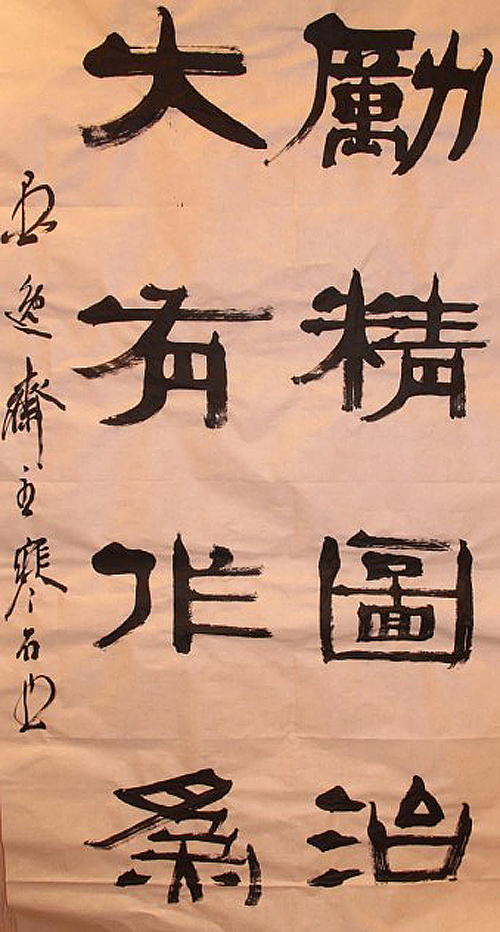 勵精圖治
大有作為
逸齋主寒石